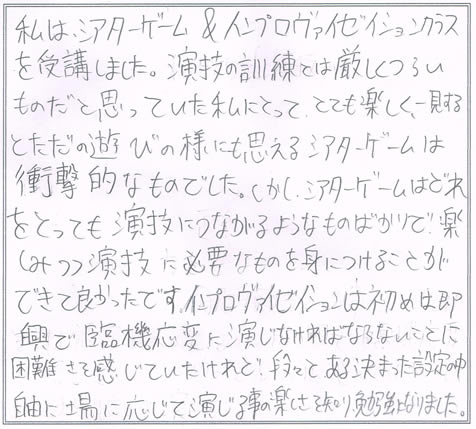 私は、シアターゲーム&インプロヴァイゼイションクラス
を受講しました。演技の訓練とは厳しくつらい
ものだと思っていた私にとって、とても楽しく、一見する
とただの遊びの様にも思えるシアターゲームは
衝撃的なものでした。しかし、シアターゲームはどれ
をとっても演技につながるようなものばかりで、楽
しみつつ演技に必要なものを身につけることが
できて良かったです。インプロヴァイゼイションは初めは即
興で臨機応変に演じなければならないことに
困難さを感じていたけれど、段々とある決まった設定の中
自由に場に応じて演じる事の楽しさを知り勉強になりました。